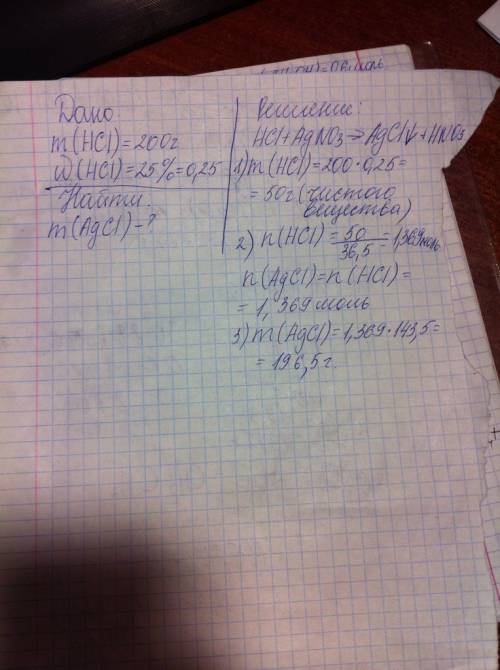 Дано
m(HCl)=200г
ω(HCl)=25%=0,25
Найти:
m(AgCl)-?
Решение:
HCl+AgNO3→AgCl↓+HNO3
1) m(HCl)=200·0,25=
=50г (чистого
вещества)
2) n(HCl)=50/36,5=1,369моль
n(AgCl)=n(HCl)=
=1,369моль
3) m(AgCl)=1,369·143,5=
=196,5г.